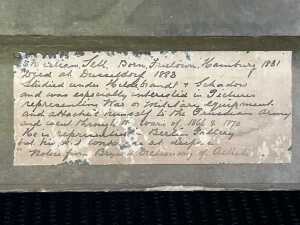 Born, Hamburg 1831
Died at Dusseldorf 1883
Studied under Hildebrandt & Schadow
and was especially interested in Pictures
representing War or Military equipment
and attached himself to the Prussian Army
and went through the Wars of 1866 & 1870
He is represented in Berlin Gallery
but his works was at
Notice from Bryan's Dictionary of Artists